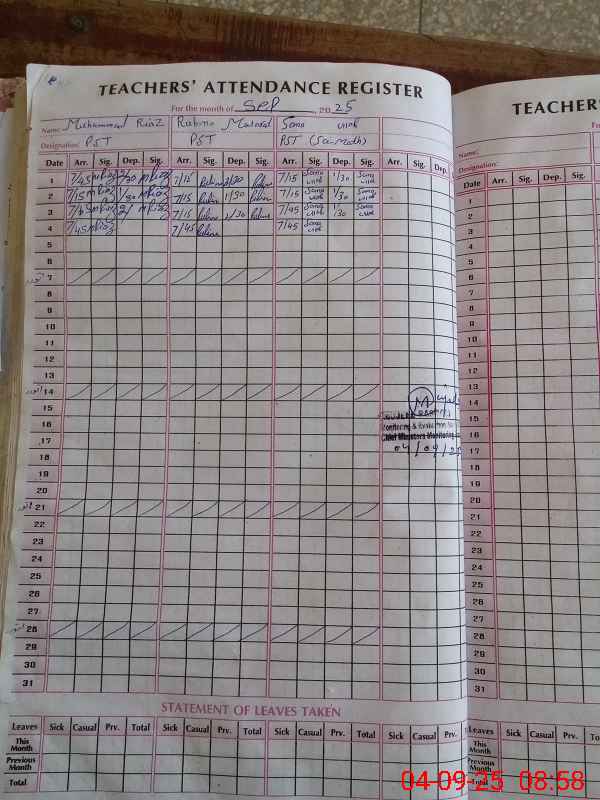 TEACHERS' ATTENDANCE REGISTER
For the month of Sep 2025
Name: Muhammad Riaz Rubina Sana
Designation: PST PST PST
Date Arr. Sig. Dep. Sig. Arr. Sig. Dep. Sig. Arr. Sig. Dep. Sig. Arr. Sig. Dep. Sig.
1 7/45 MRiaz 1/30 MRiaz 7/15 Rubina 1/30 Rubina 7/15 Sana 1/30 Sana
2 7/15 MRiaz 1/30 MRiaz 7/15 Rubina 1/30 Rubina 7/15 Sana 1/30 Sana
3 MRiaz MRiaz 7/15 Rubina 1/30 Rubina 7/45 Sana 1/30 Sana
4 7/45 MRiaz 7/45 Rubina 7/45 Sana
5
6
اتوار 7
8
9
10
11
12
13
اتوار 14
15
16
17
18
19
20
اتوار 21
22
23
24
25
26
27
اتوار 28
29
30
31
Monitoring & Evaluation
Chief Ministers Monitoring
04/09/25
STATEMENT OF LEAVES TAKEN
Leaves Sick Casual Prv. Total Sick Casual Prv. Total Sick Casual Prv. Total Sick
This Month
Previous Month
Total
TEACHERS'
Name:
Designation:
Date Arr. Sig. Dep. Sig. Arr.
1
2
3
4
5
6
7
8
9
10
11
12
13
14
15
16
17
18
19
20
21
22
23
24
25
26
27
28
29
30
31
Leaves Sick Casual Prv. Total Sick
This Month
Previous Month
Total
04-09-25 08:58